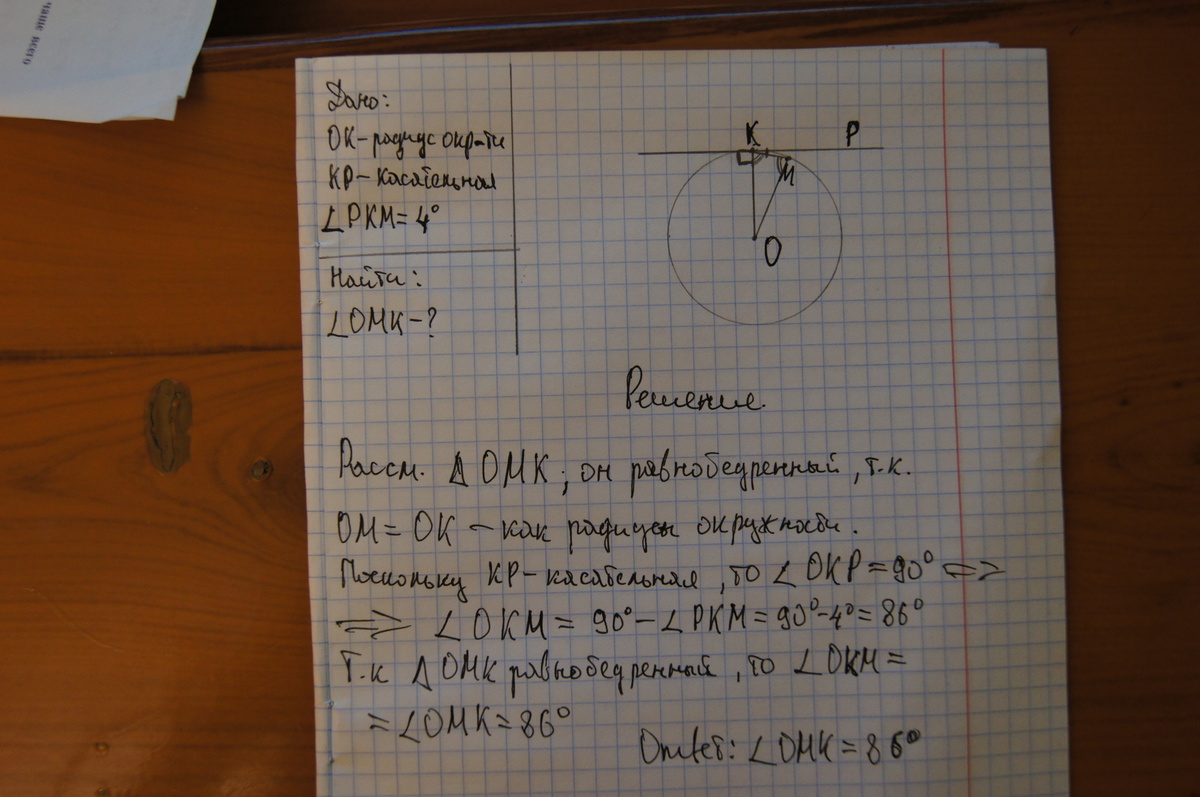 чаще всего
Дано:
OK-радиус окр-ти
KP-касательная
∠PKM=4°
Найти:
∠OMK-?
K P
M
O
Решение.
Рассм. △OMK; он равнобедренный, т.к.
OM=OK – как радиусы окружности.
Поскольку KP-касательная, то ∠OKP=90° =>
=> ∠OKM = 90°-∠PKM=90°-4°=86°
Т.к △OMK равнобедренный, то ∠OKM=
=∠OMK=86°
Ответ: ∠OMK=86°